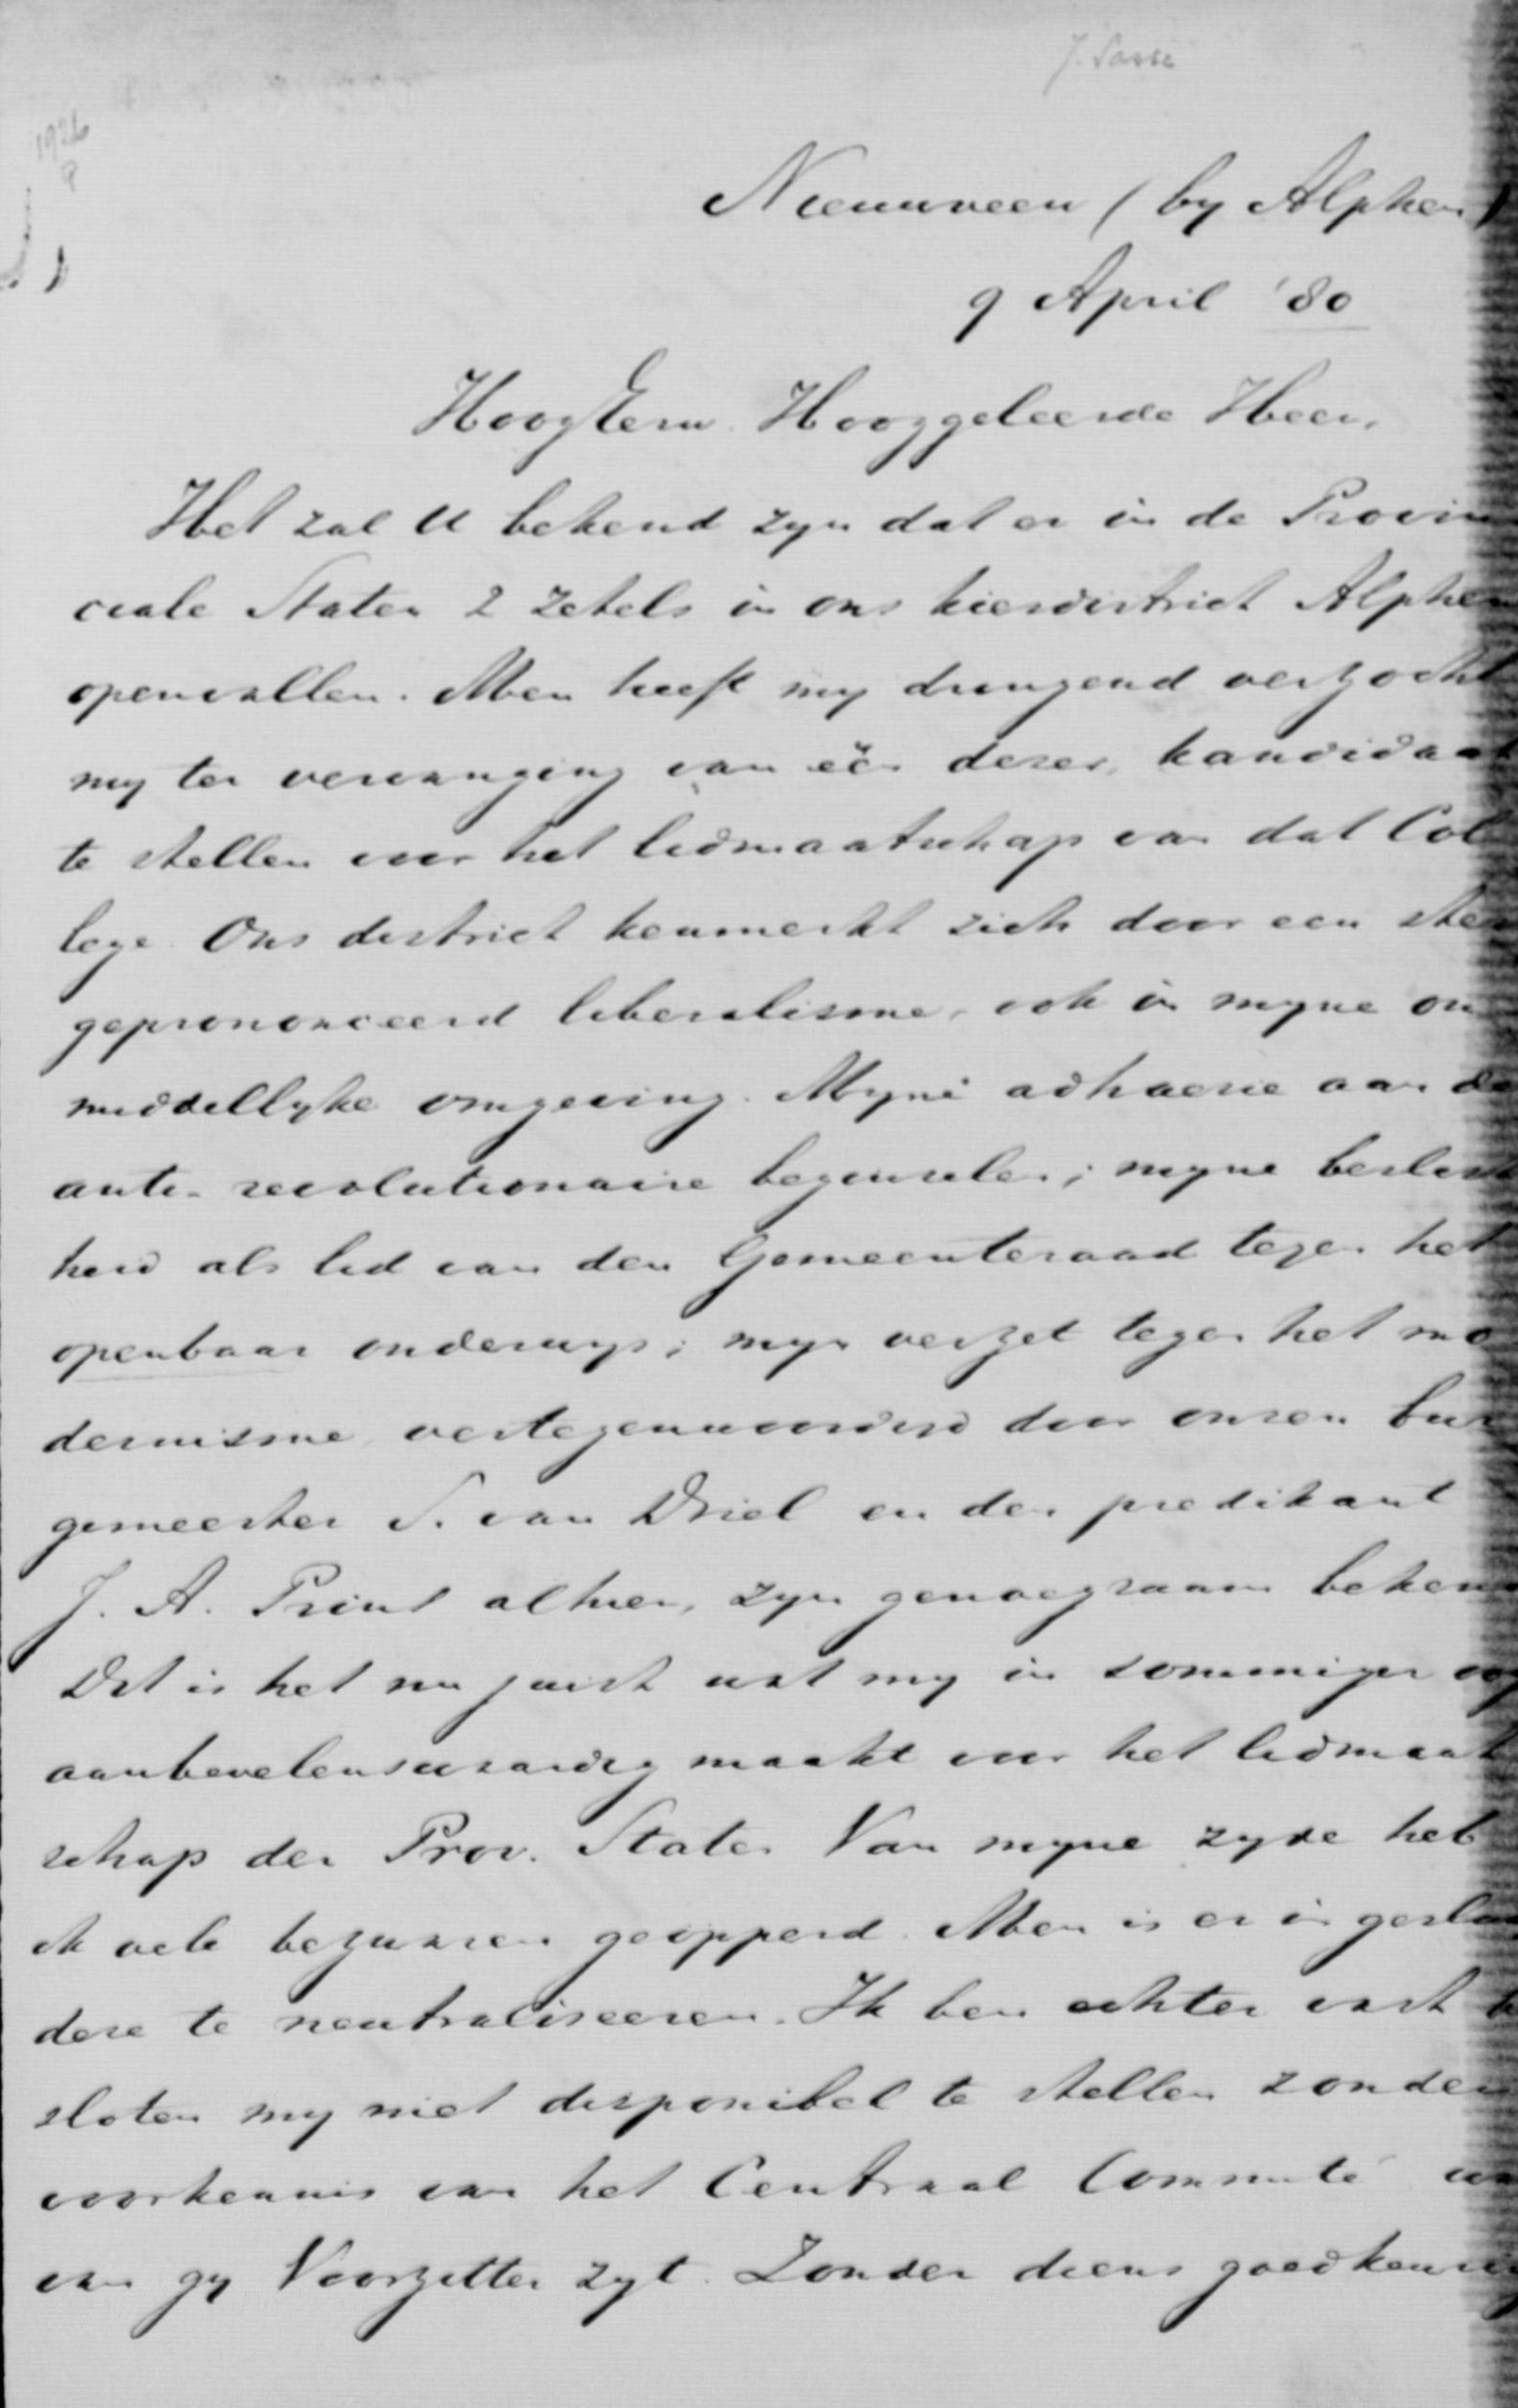 J. Sasse
1926
9
Nieuwveen (by Alphen)
9 April '80
HoogEerw. Hooggeleerde Heer,
Het zal U bekend zyn dat er in de Provin
ciale Staten 2 zetels in ons kiesdistrict Alphen
openvallen. Men heeft my dringend verzocht
my ter vervanging van één dezer, kandidaat
te stellen voor het lidmaatschap van dat Col
lege. Ons district kenmerkt zich door een sterk
geprononceerd liberalisme, ook in myne on
middellyke omgeving. Myne adhaesie aan de
anti-revolutionaire beginselen; myne beslist
heid als lid van den Gemeenteraad tegen het
openbaar onderwys; myn verzet tegen het mo
dernisme vertegenwoordigd door onzen bur
gemeester S. van Driel en den predikant
J. A. Prins alhier, zyn genoegzaam bekend
Dit is het nu juist wat my in sommiger oog
aanbevelenswaardig maakt voor het lidmaat
schap der Prov. Staten. Van myne zyde heb
ik vele bezwaren geopperd. Men is er in gesla
deze te neutraliseeren. Ik ben echter vast be
sloten my niet disponibel te stellen zonder
voorkennis van het Centraal Committé waar
van gy Voorzitter zyt. Zonder diens goedkeuring